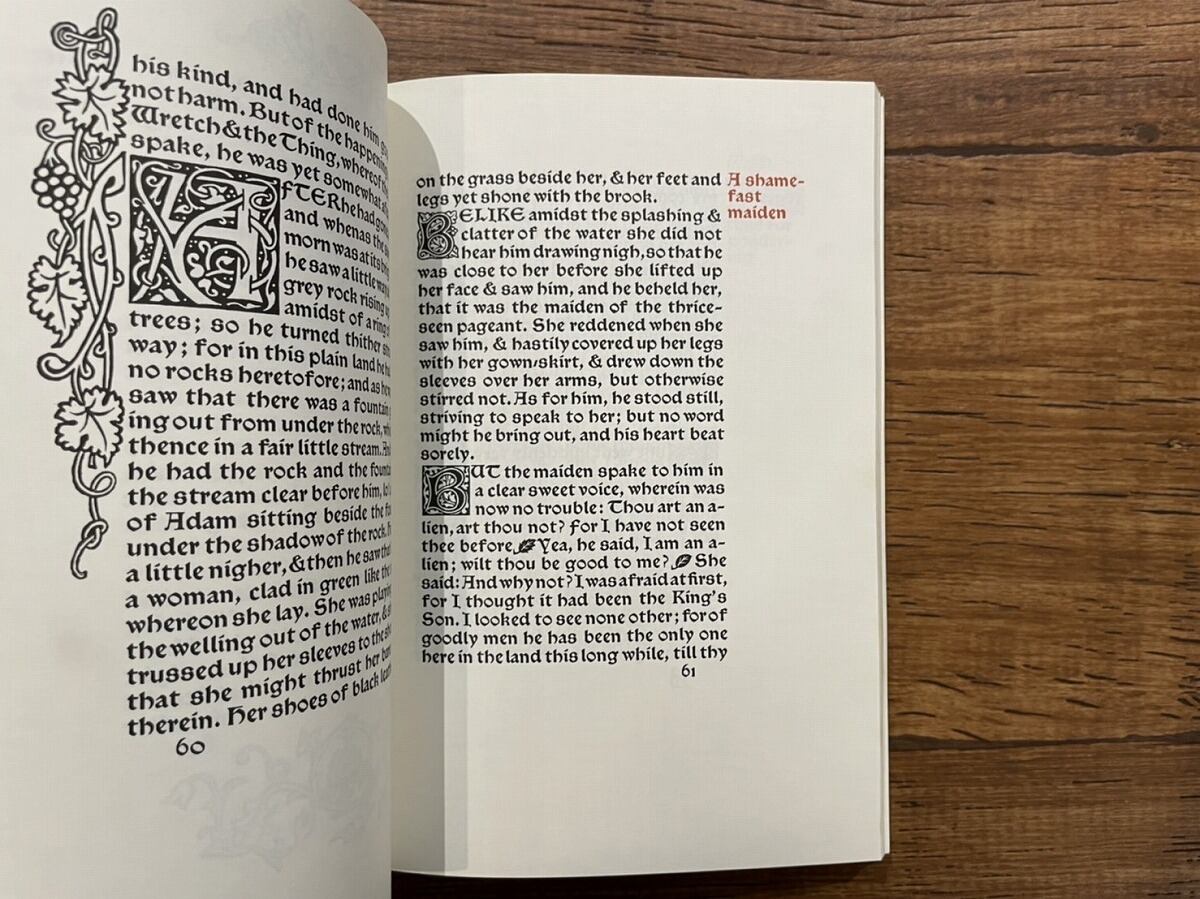 his kind, and had done him
not harm. But of the happening
Wretch & the Thing, whereof the
spake, he was yet somewhat
AFTER he had gone
and whenas the
morn was at its
he saw a little way
grey rock rising up
amidst of a ring of
trees; so he turned thither
way; for in this plain land he
no rocks heretofore; and as he
saw that there was a fountain
ing out from under the rock,
thence in a fair little stream. And
he had the rock and the
the stream clear before him, lo!
of Adam sitting beside the
under the shadow of the rock.
a little nigher, & then he saw that
a woman, clad in green like the
whereon she lay. She was playing
the welling out of the water, &
trussed up her sleeves to the
that she might thrust her bare
therein. Her shoes of black
60
on the grass beside her, & her feet and
legs yet shone with the brook.
A shame-
fast
maiden
BELIKE amidst the splashing &
clatter of the water she did not
hear him drawing nigh, so that he
was close to her before she lifted up
her face & saw him, and he beheld her,
that it was the maiden of the thrice-
seen pageant. She reddened when she
saw him, & hastily covered up her legs
with her gown-skirt, & drew down the
sleeves over her arms, but otherwise
stirred not. As for him, he stood still,
striving to speak to her; but no word
might he bring out, and his heart beat
sorely.
BUT the maiden spake to him in
a clear sweet voice, wherein was
now no trouble: Thou art an a-
lien, art thou not? for I have not seen
thee before. Yea, he said, I am an a-
lien; wilt thou be good to me? She
said: And why not? I was afraid at first,
for I thought it had been the King's
Son. I looked to see none other; for of
goodly men he has been the only one
here in the land this long while, till thy
61